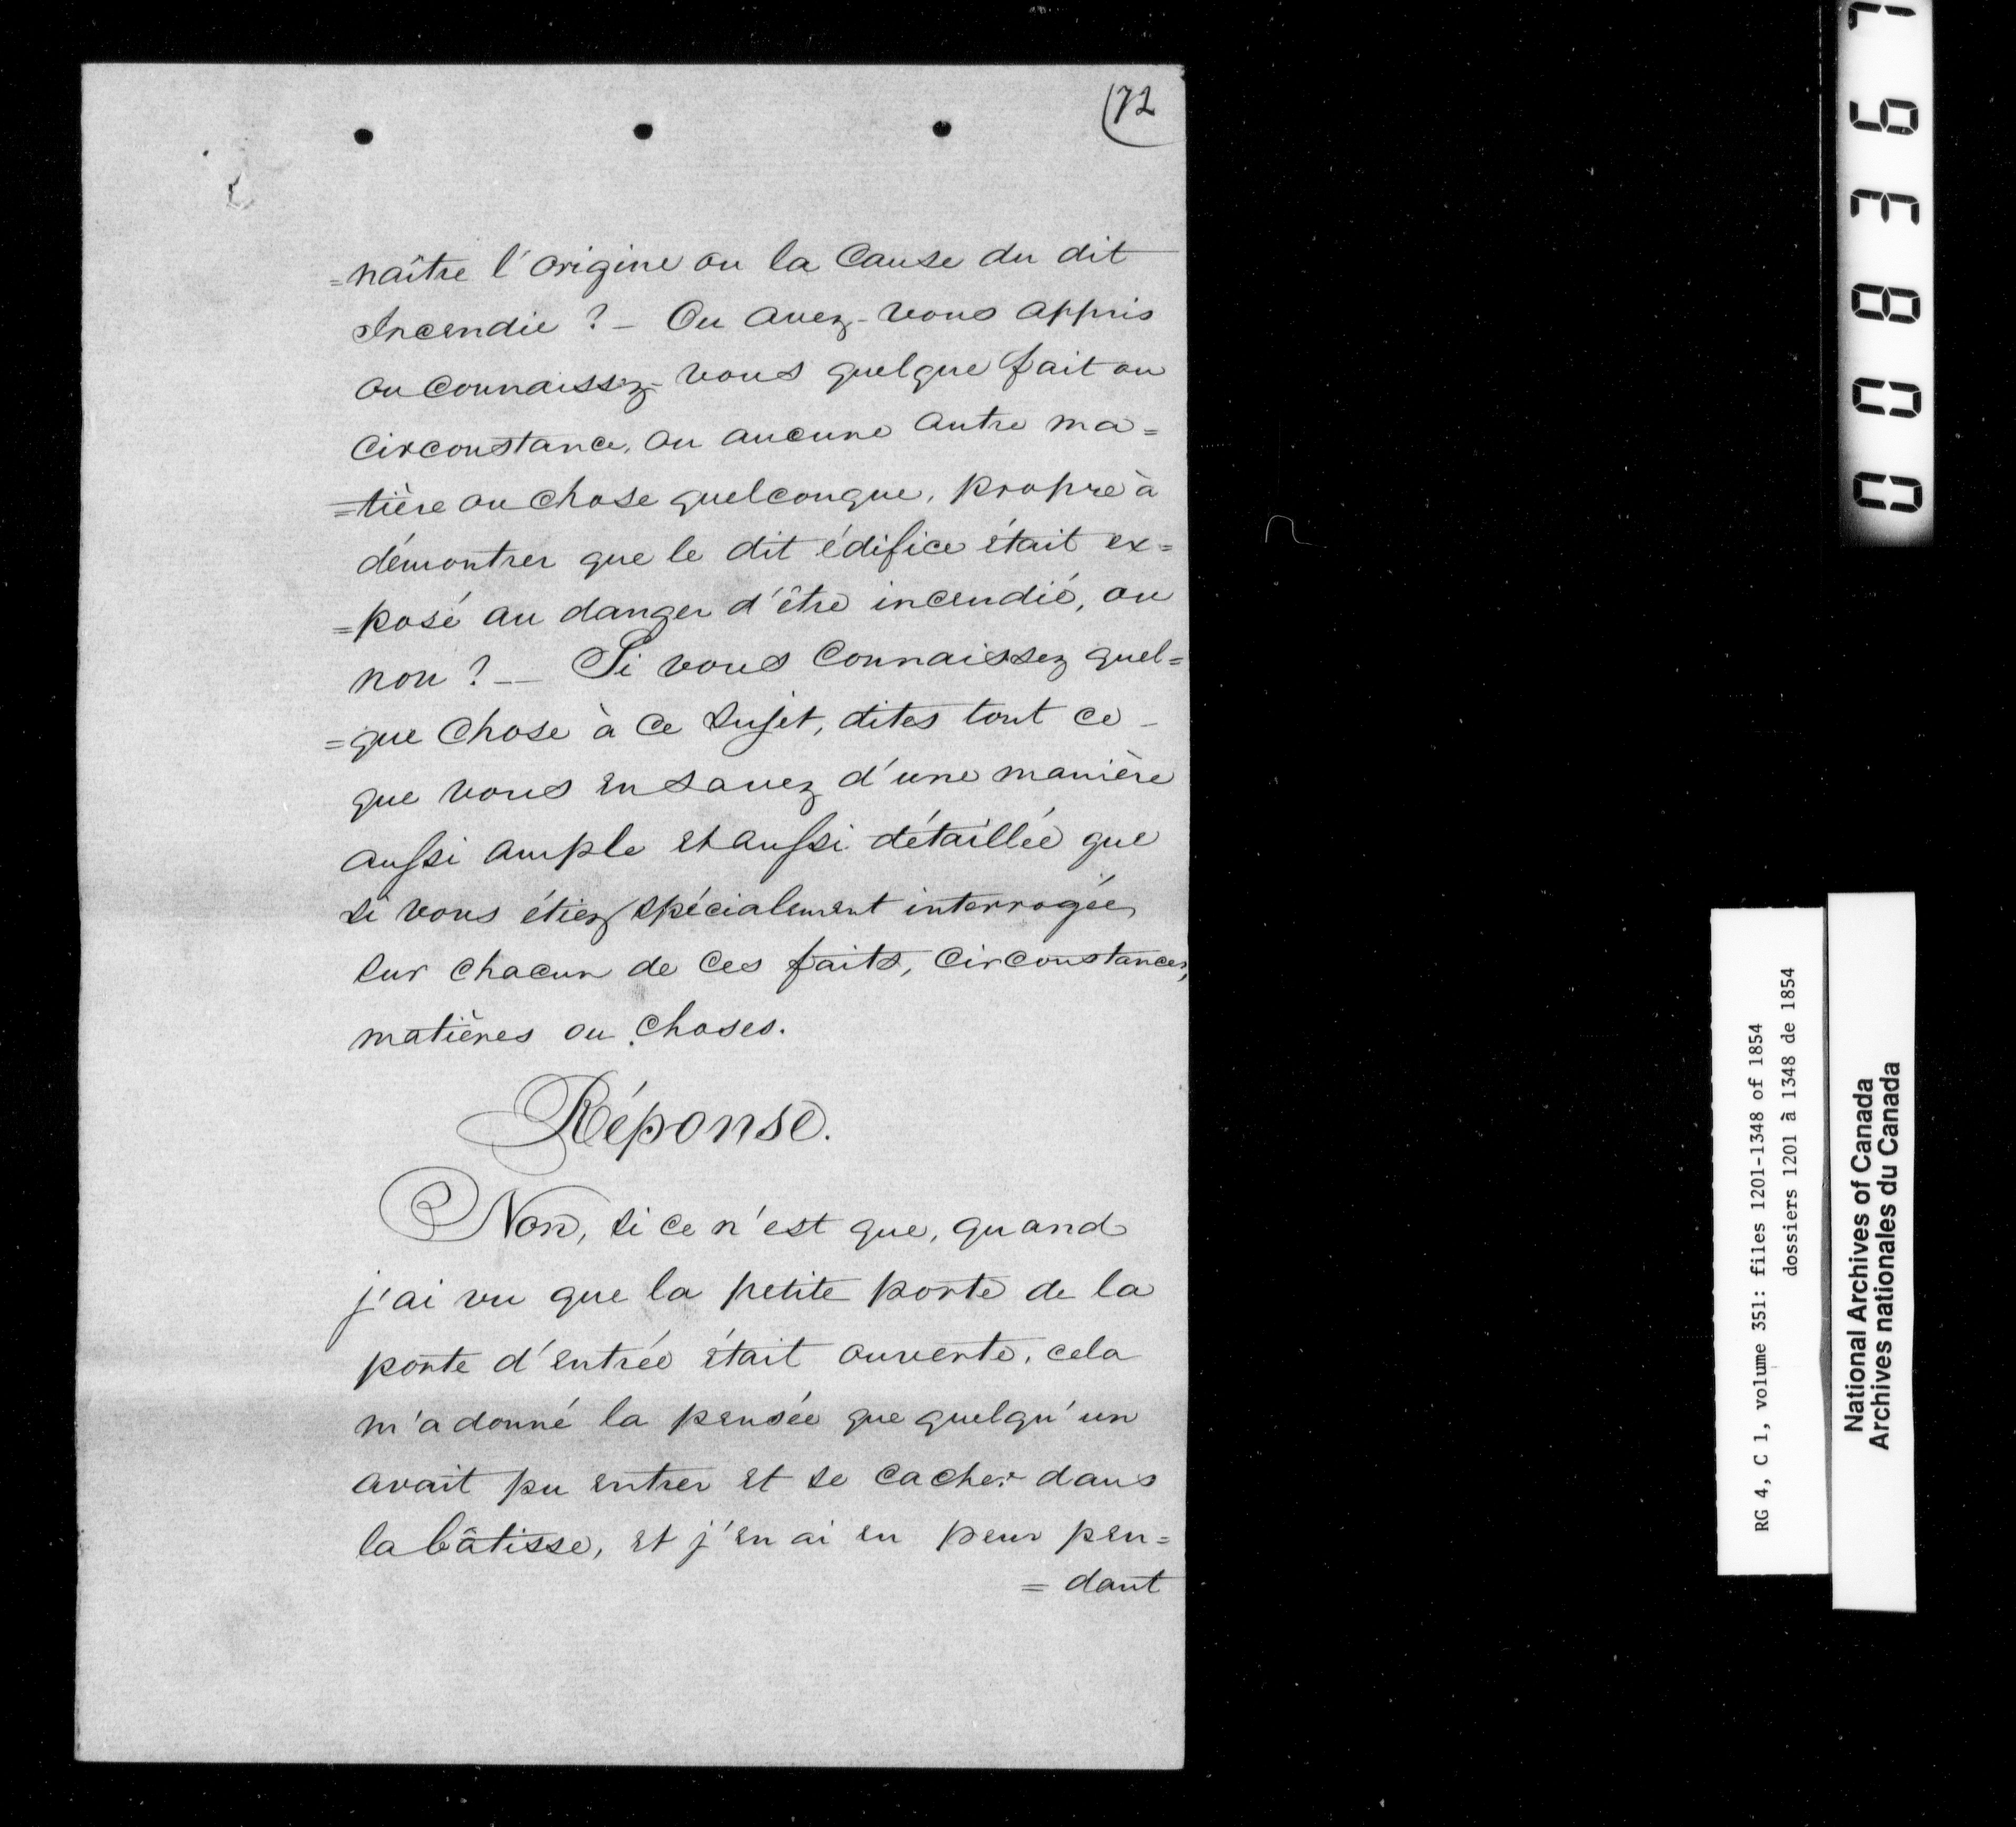 (72
=naître l'origine ou la Cause du dit
Incendie ? — Ou avez-vous appris
ou connaissez-vous quelque fait ou
circonstance, ou aucune autre ma=
=tière ou chose quelconque, propre à
démontrer que le dit édifice était ex=
=posé au danger d'être incendié, ou
non ? — Si vous connaissez quel=
=que chose à ce sujet, dites tout ce —
que vous en savez d'une manière
aussi ample et aussi détaillée que
si vous étiez spécialement interrogée
sur chacun de ces faits, circonstances,
matières ou choses.
Réponse.
Non, si ce n'est que, quand
j'ai vu que la petite porte de la
porte d'entrée était ouverte, cela
m'a donné la pensée que quelqu'un
avait pu entrer et se cacher dans
la bâtisse, et j'en ai eu peur pen=
= dant
008367
RG 4, C 1, volume 351: files 1201-1348 of 1854
dossiers 1201 à 1348 de 1854
National Archives of Canada
Archives nationales du Canada